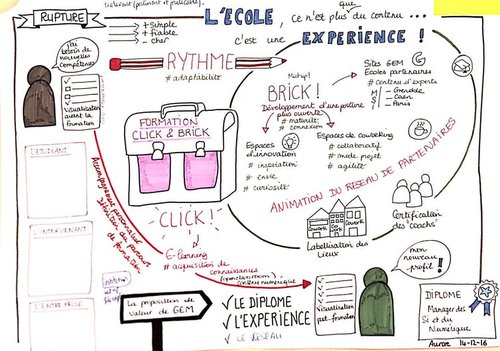 RUPTURE
+ simple
+ fiable
- cher
L'ÉCOLE, ce n'est plus du contenu ...
que
c'est une EXPÉRIENCE !
J'ai
besoin de
nouvelles
compétences
RYTHME
# adaptabilité
Visualisation
avant la
formation
FORMATION
CLICK & BRICK
BRICK !
Développement d'une posture
plus ouverte
# maturité
# connexion
Sites GEM
Écoles partenaires
# contenu d'experts
Grenoble
Caen
Paris
Espaces
d'innovation
# inspiration
# envie
# curiosité
Espaces de coworking
# collaboratif
# mode projet
# agilité
ANIMATION DU RÉSEAU DE PARTENAIRES
Certification
des "coachs"
Labellisation des
Lieux
L'ÉTUDIANT
L'INTERVENANT
L'ENTREPRISE
Accompagnement personnalisé
Définition du parcours
de formation
CLICK !
E-learning
# acquisition de
connaissances
(openclassroom) contenu numérique
La proposition de
valeur de GEM
LE DIPLÔME
L'EXPÉRIENCE
LE RÉSEAU
Visualisation
post-formation
mon
nouveau
profil !
DIPLÔME
Manager des
SI et du
Numérique
14-12-16